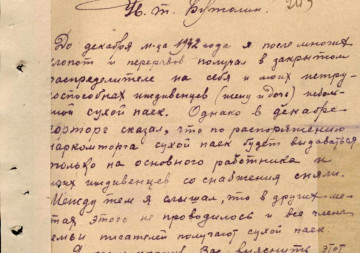 До декабря м-ца 1942 года я после многих
хлопот и перерывов получал в закрытом
распределителе на себя и моих нетру-
доспособных иждивенцев (жену и дочь) небол-
шой сухой паек. Однако в декабре
торге сказал, что по распоряжению
наркомторга сухой паек будет выдаваться
только на основного работника и
моих иждивенцев со снабжения сняли.
Между тем я слышал, что в других мес-
тах этого не проводилось и все члены
семьи писателей получают сухой паек.
Вас выяснить этот